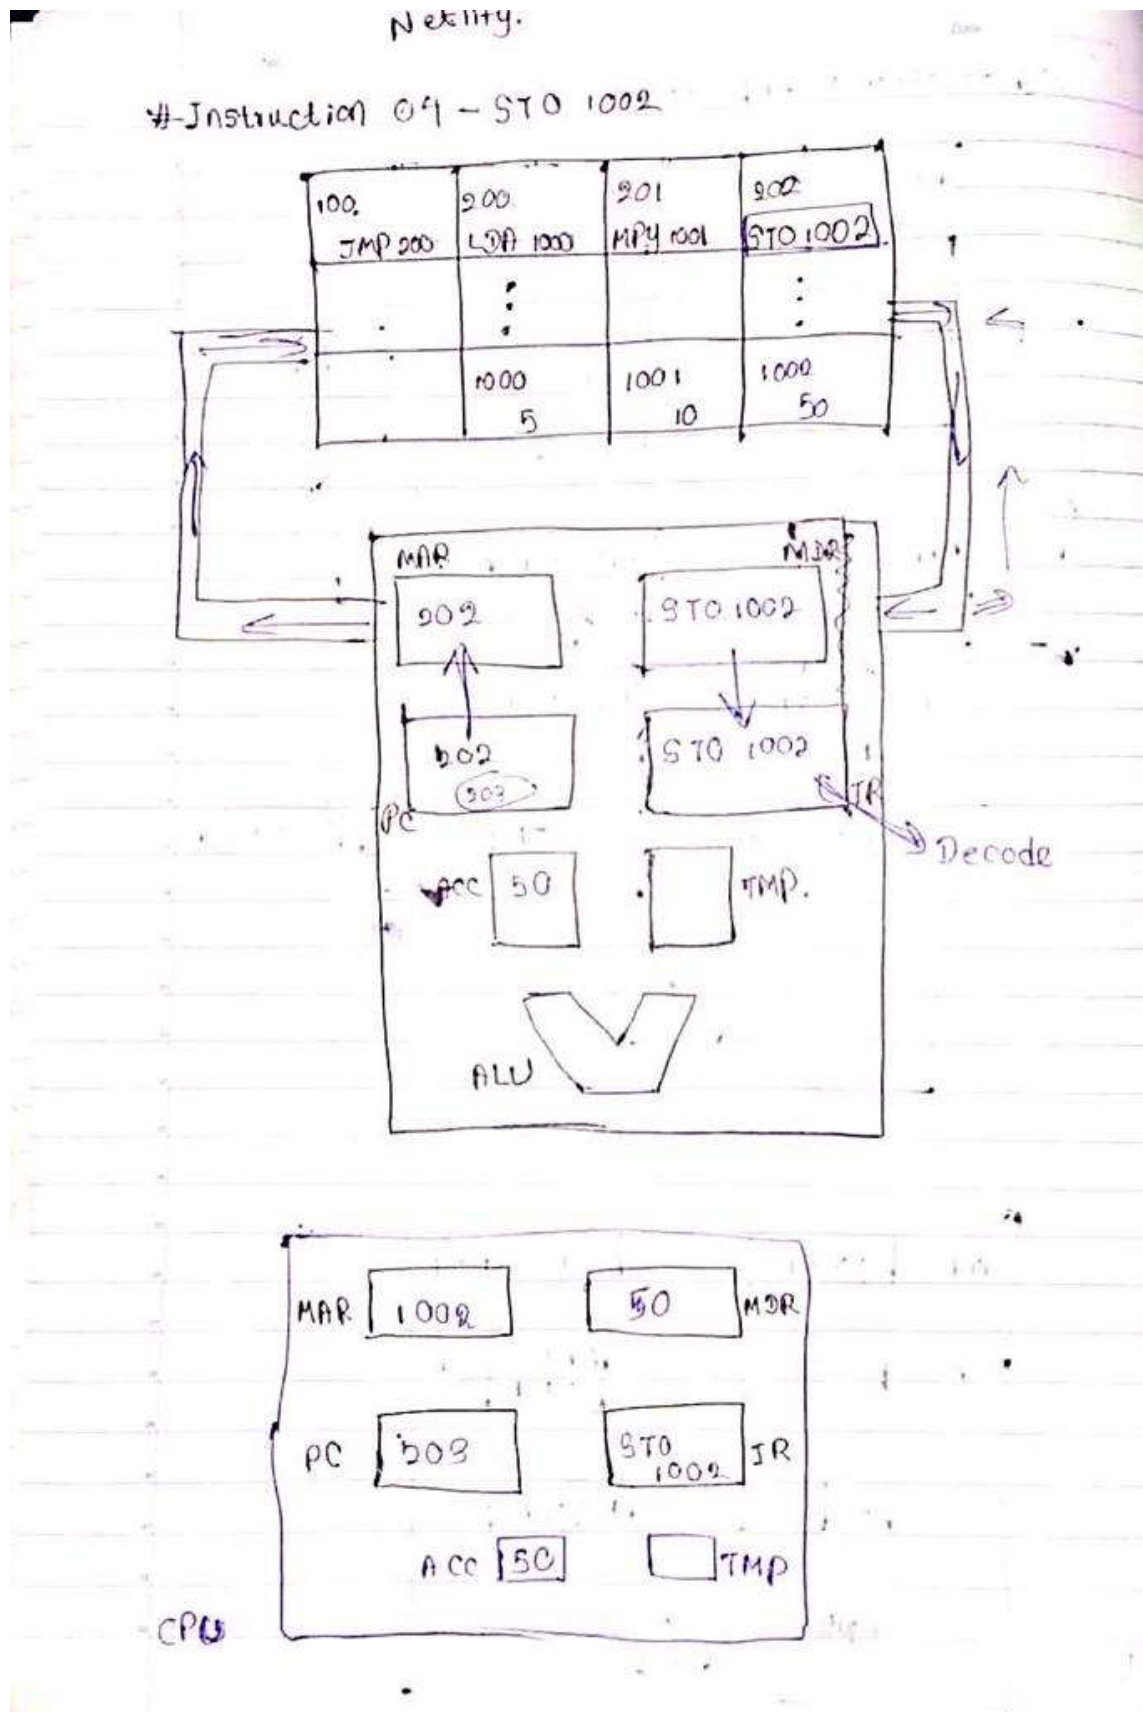 Netlify.
#-Instruction 04 - STO 1002
100. 200 201 202
JMP 200 LDA 1000 MPY 1001 STO 1002
1000 1001 1002
5 10 50
MAR MDR
202 STO 1002
202 STO 1002
203 IR
PC
Decode
ACC 50 TMP.
ALU
MAR 1002 50 MDR
PC 203 STO IR
1002
ACC 50 TMP
CPU